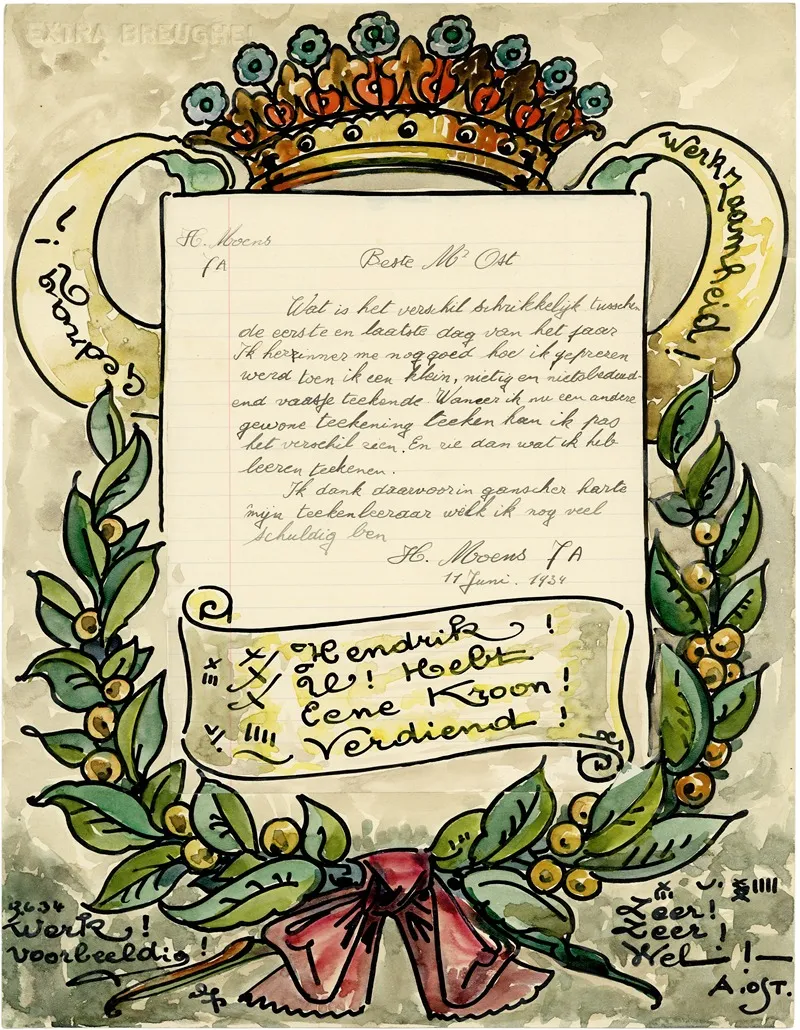 EXTRA BREUGHEL
Werkzaamheid!
Gedrag!
H. Moens
7A
Beste Mr Ost
Wat is het verschil schrikkelijk tusschen
de eerste en laatste dag van het jaar
Ik herrinner me nog goed hoe ik geprezen
werd toen ik een klein, nietig en nietsbeduid-
end vaasje teekende. Waneer ik nu een andere
gewone teekening teeken kan ik pas
het verschil zien. En zie dan wat ik heb
leeren teekenen.
Ik dank daarvoor in ganscher harte
mijn teekenleeraar welk ik nog veel
schuldig ben
H. Moens 7A
11 Juni. 1934
Hendrik!
U! Hebt
Eene Kroon!
Verdiend!
Werk!
voorbeeldig!
Zeer!
Zeer!
Wel!
A. OST.